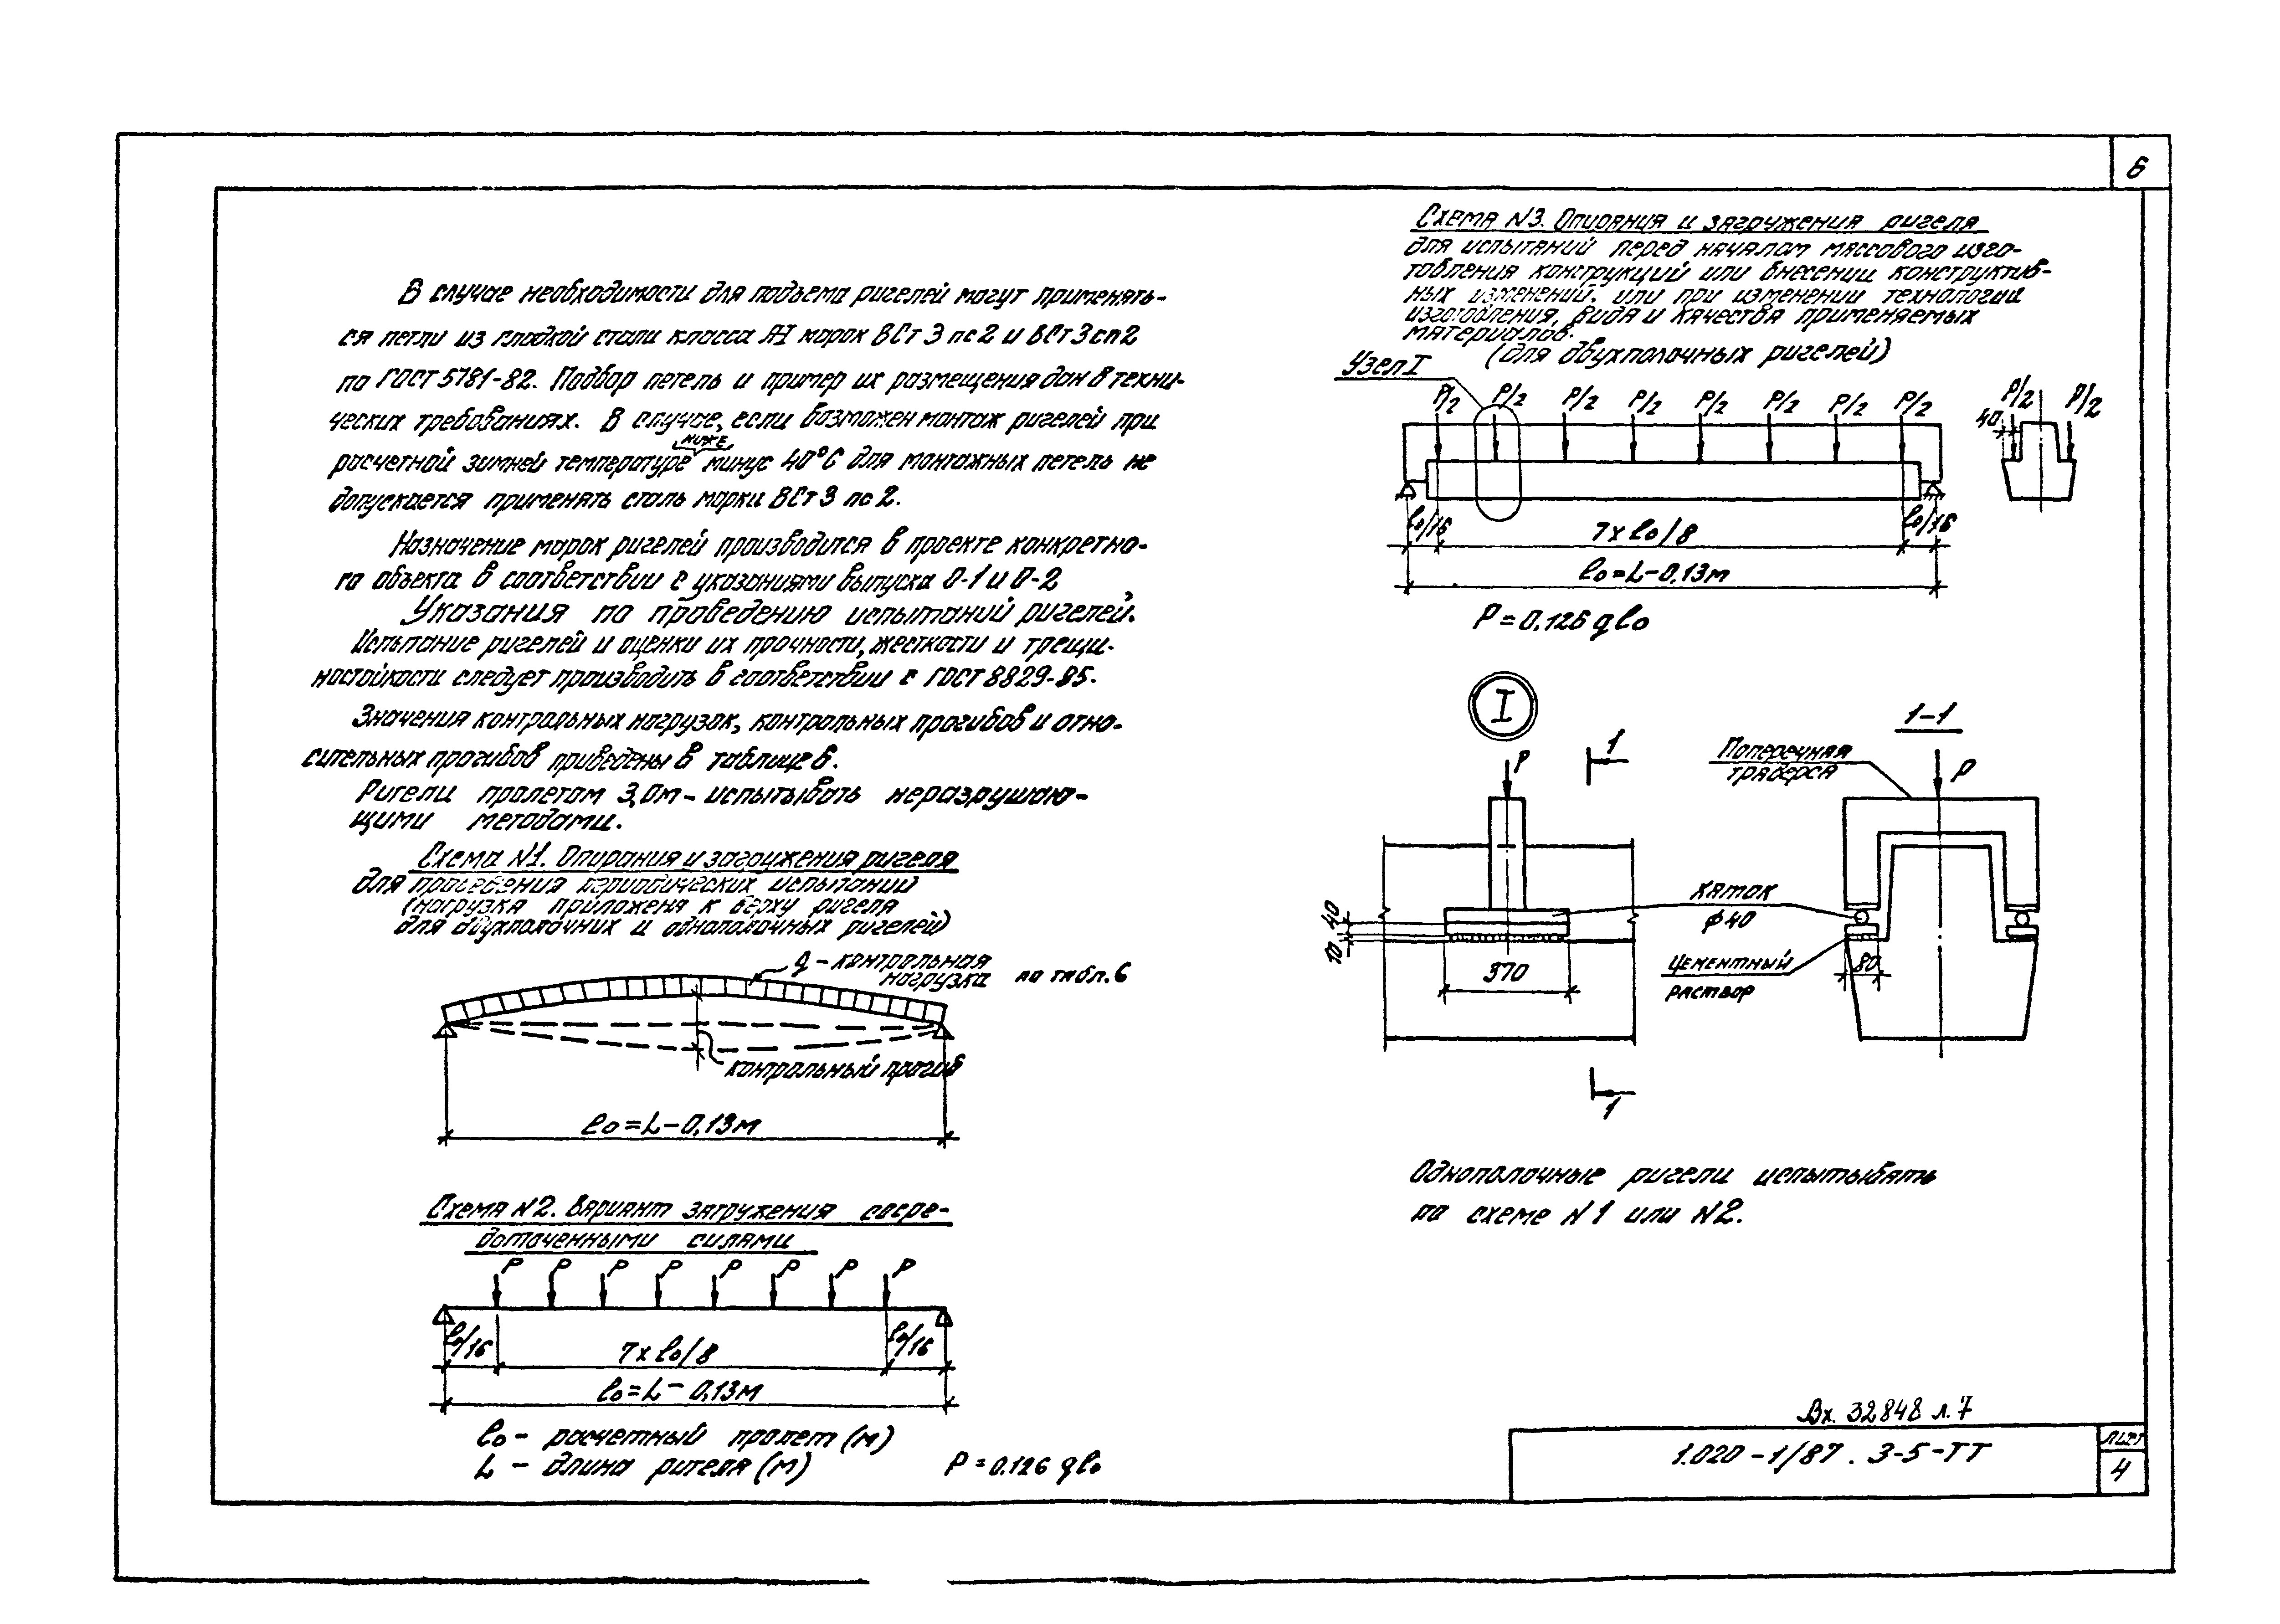 6
В случае необходимости для подъема ригелей могут применять-
ся петли из гладкой стали класса АI марок ВСт 3 пс 2 и ВСт 3 сп 2
по ГОСТ 5781-82. Подбор петель и пример их размещения дан в техни-
ческих требованиях. В случае, если возможен монтаж ригелей при
ниже
расчетной зимней температуре минус 40°С для монтажных петель не
допускается применять сталь марки ВСт 3 пс 2.
Назначение марок ригелей производится в проекте конкретно-
го объекта в соответствии с указаниями выпуска 0-1 и 0-2
Указания по проведению испытаний ригелей.
Испытание ригелей и оценки их прочности, жесткости и трещи-
ностойкости следует производить в соответствии с ГОСТ 8829-85.
Значения контрольных нагрузок, контрольных прогибов и отно-
сительных прогибов приведены в таблице 6.
Ригели пролетом 3,0м - испытывать неразрушаю-
щими методами.
Схема N1. Опирания и загружения ригеля
для проведения периодических испытаний
(нагрузка приложена к верху ригеля
для двухполочных и однополочных ригелей)
q - контрольная
нагрузка по табл. 6
контрольный прогиб
ℓ₀ = L - 0,13м
Схема N2. Вариант загружения сосре-
доточенными силами
P P P P P P P P
ℓ₀/16 7 x ℓ₀/8 ℓ₀/16
ℓ₀ = L - 0,13м
ℓ₀ - расчетный пролет (м)
L - длина ригеля (м) P = 0.126 qℓ₀
Схема N3. Опирания и загружения ригеля
для испытаний перед началом массового изго-
товления конструкций или внесении конструктив-
ных изменений. или при изменении технологии
изготовления, вида и качества применяемых
материалов.
(для двухполочных ригелей)
Узел I
P/2 P/2 P/2 P/2 P/2 P/2 P/2 P/2
P/2 P/2
40
ℓ₀/16 7 x ℓ₀/8 ℓ₀/16
ℓ₀ = L - 0,13м
P = 0,126 qℓ₀
I
P
1
40
10
370
1
1-1
Поперечная
траверса
P
Каток
ϕ 40
Цементный
раствор
80
Однополочные ригели испытывать
по схеме N1 или N2.
Вх. 32848 л. 7
1.020 - 1/87 . 3-5-ТТ
Лист
4